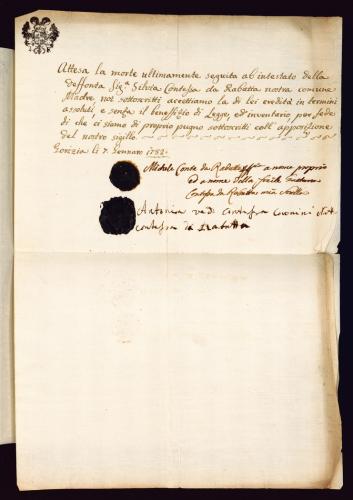 Attesa la morte ultimamente seguita ab intestato della
deffonta Sig.ª Silvia Contessa da Rabatta nostra comune
Madre noi sottoscritti accettiamo la di lei eredità in termini
assoluti, e senza il beneffizio di Legge, ed inventario, per fede
di che ci siamo di proprio pugno sottoscritti coll' apposizione
del nostro sigillo.
Gorizia li 7. Gennaro 1782.
Michele Conte da Rabatta a nome proprio
ed a nome della
Contessa da Rabatta mia Sorella
Antonia ved. Contessa Coronini Nat.
contessa di Rabatta